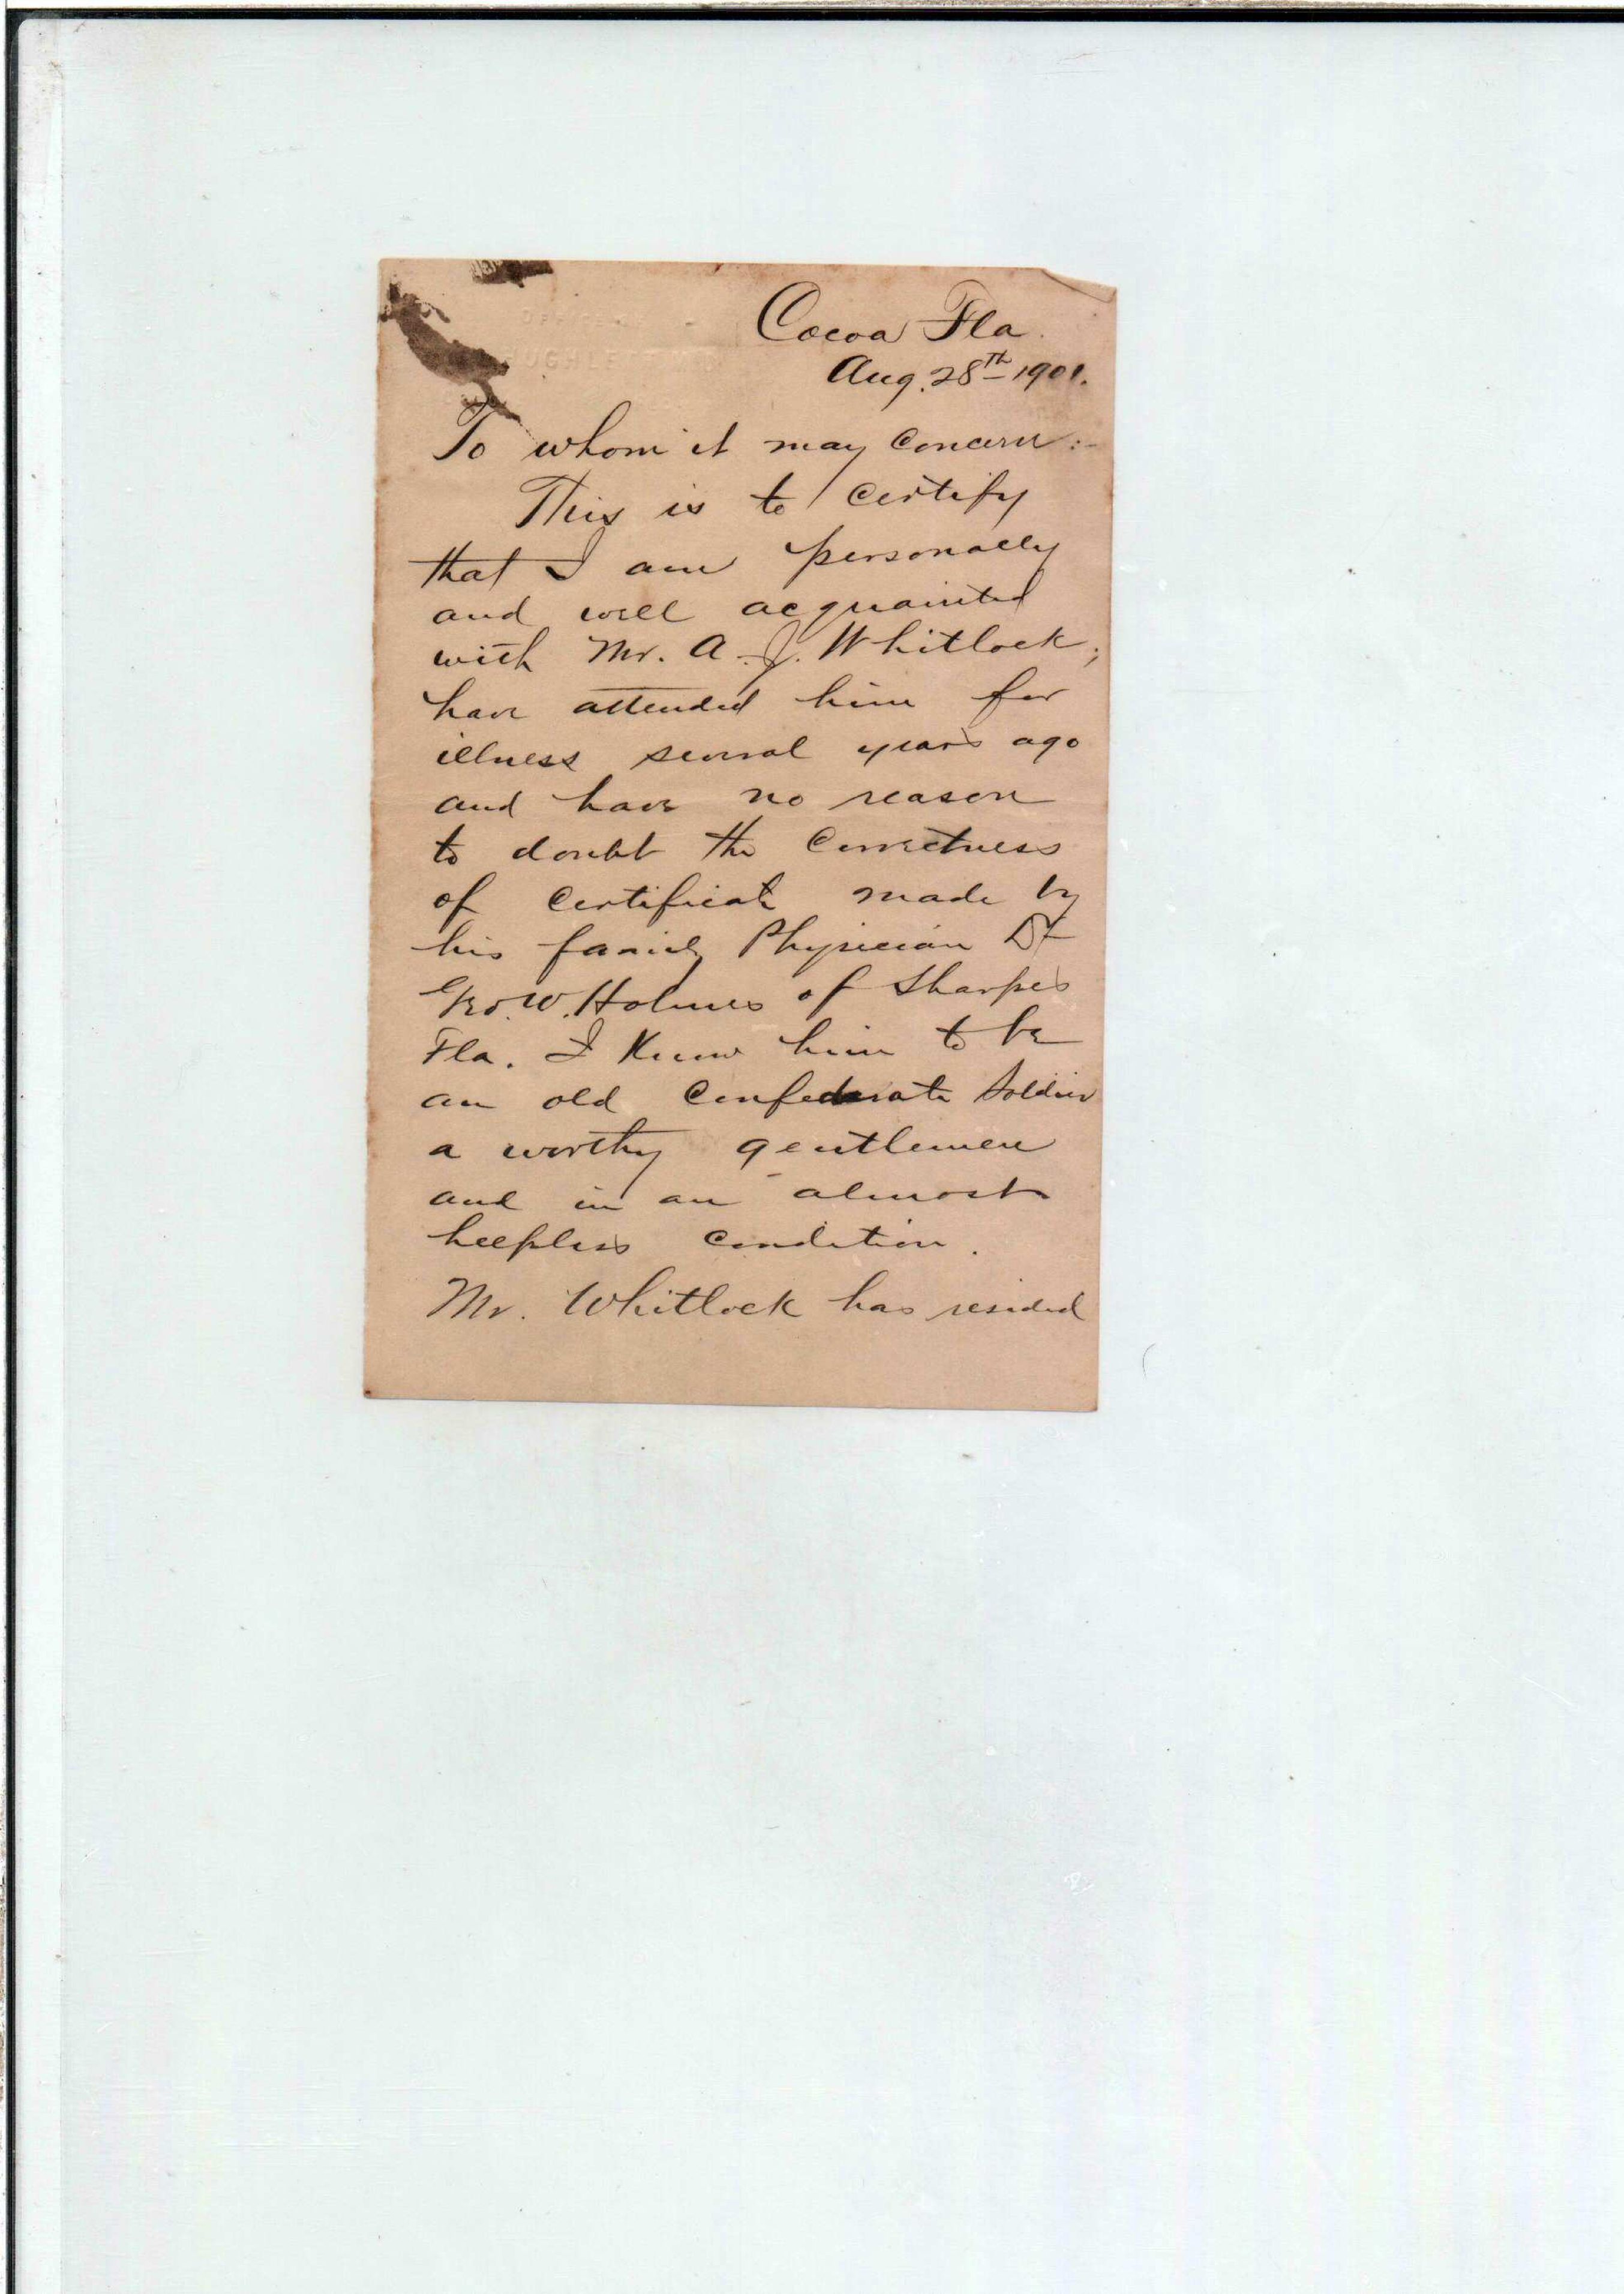 Cocoa Fla.
Aug. 28th 1901.
To whom it may concern:-
This is to certify
that I am personally
and well acquainted
with Mr. A. J. Whitlock;
have attended him for
illness several years ago
and have no reason
to doubt the correctness
of certificate made by
his family Physician Dr
Geo. W. Holmes of Sharpes
Fla. I know him to be
an old Confederate Soldier
a worthy gentlemen
and in an almost
helpless condition.
Mr. Whitlock has resided